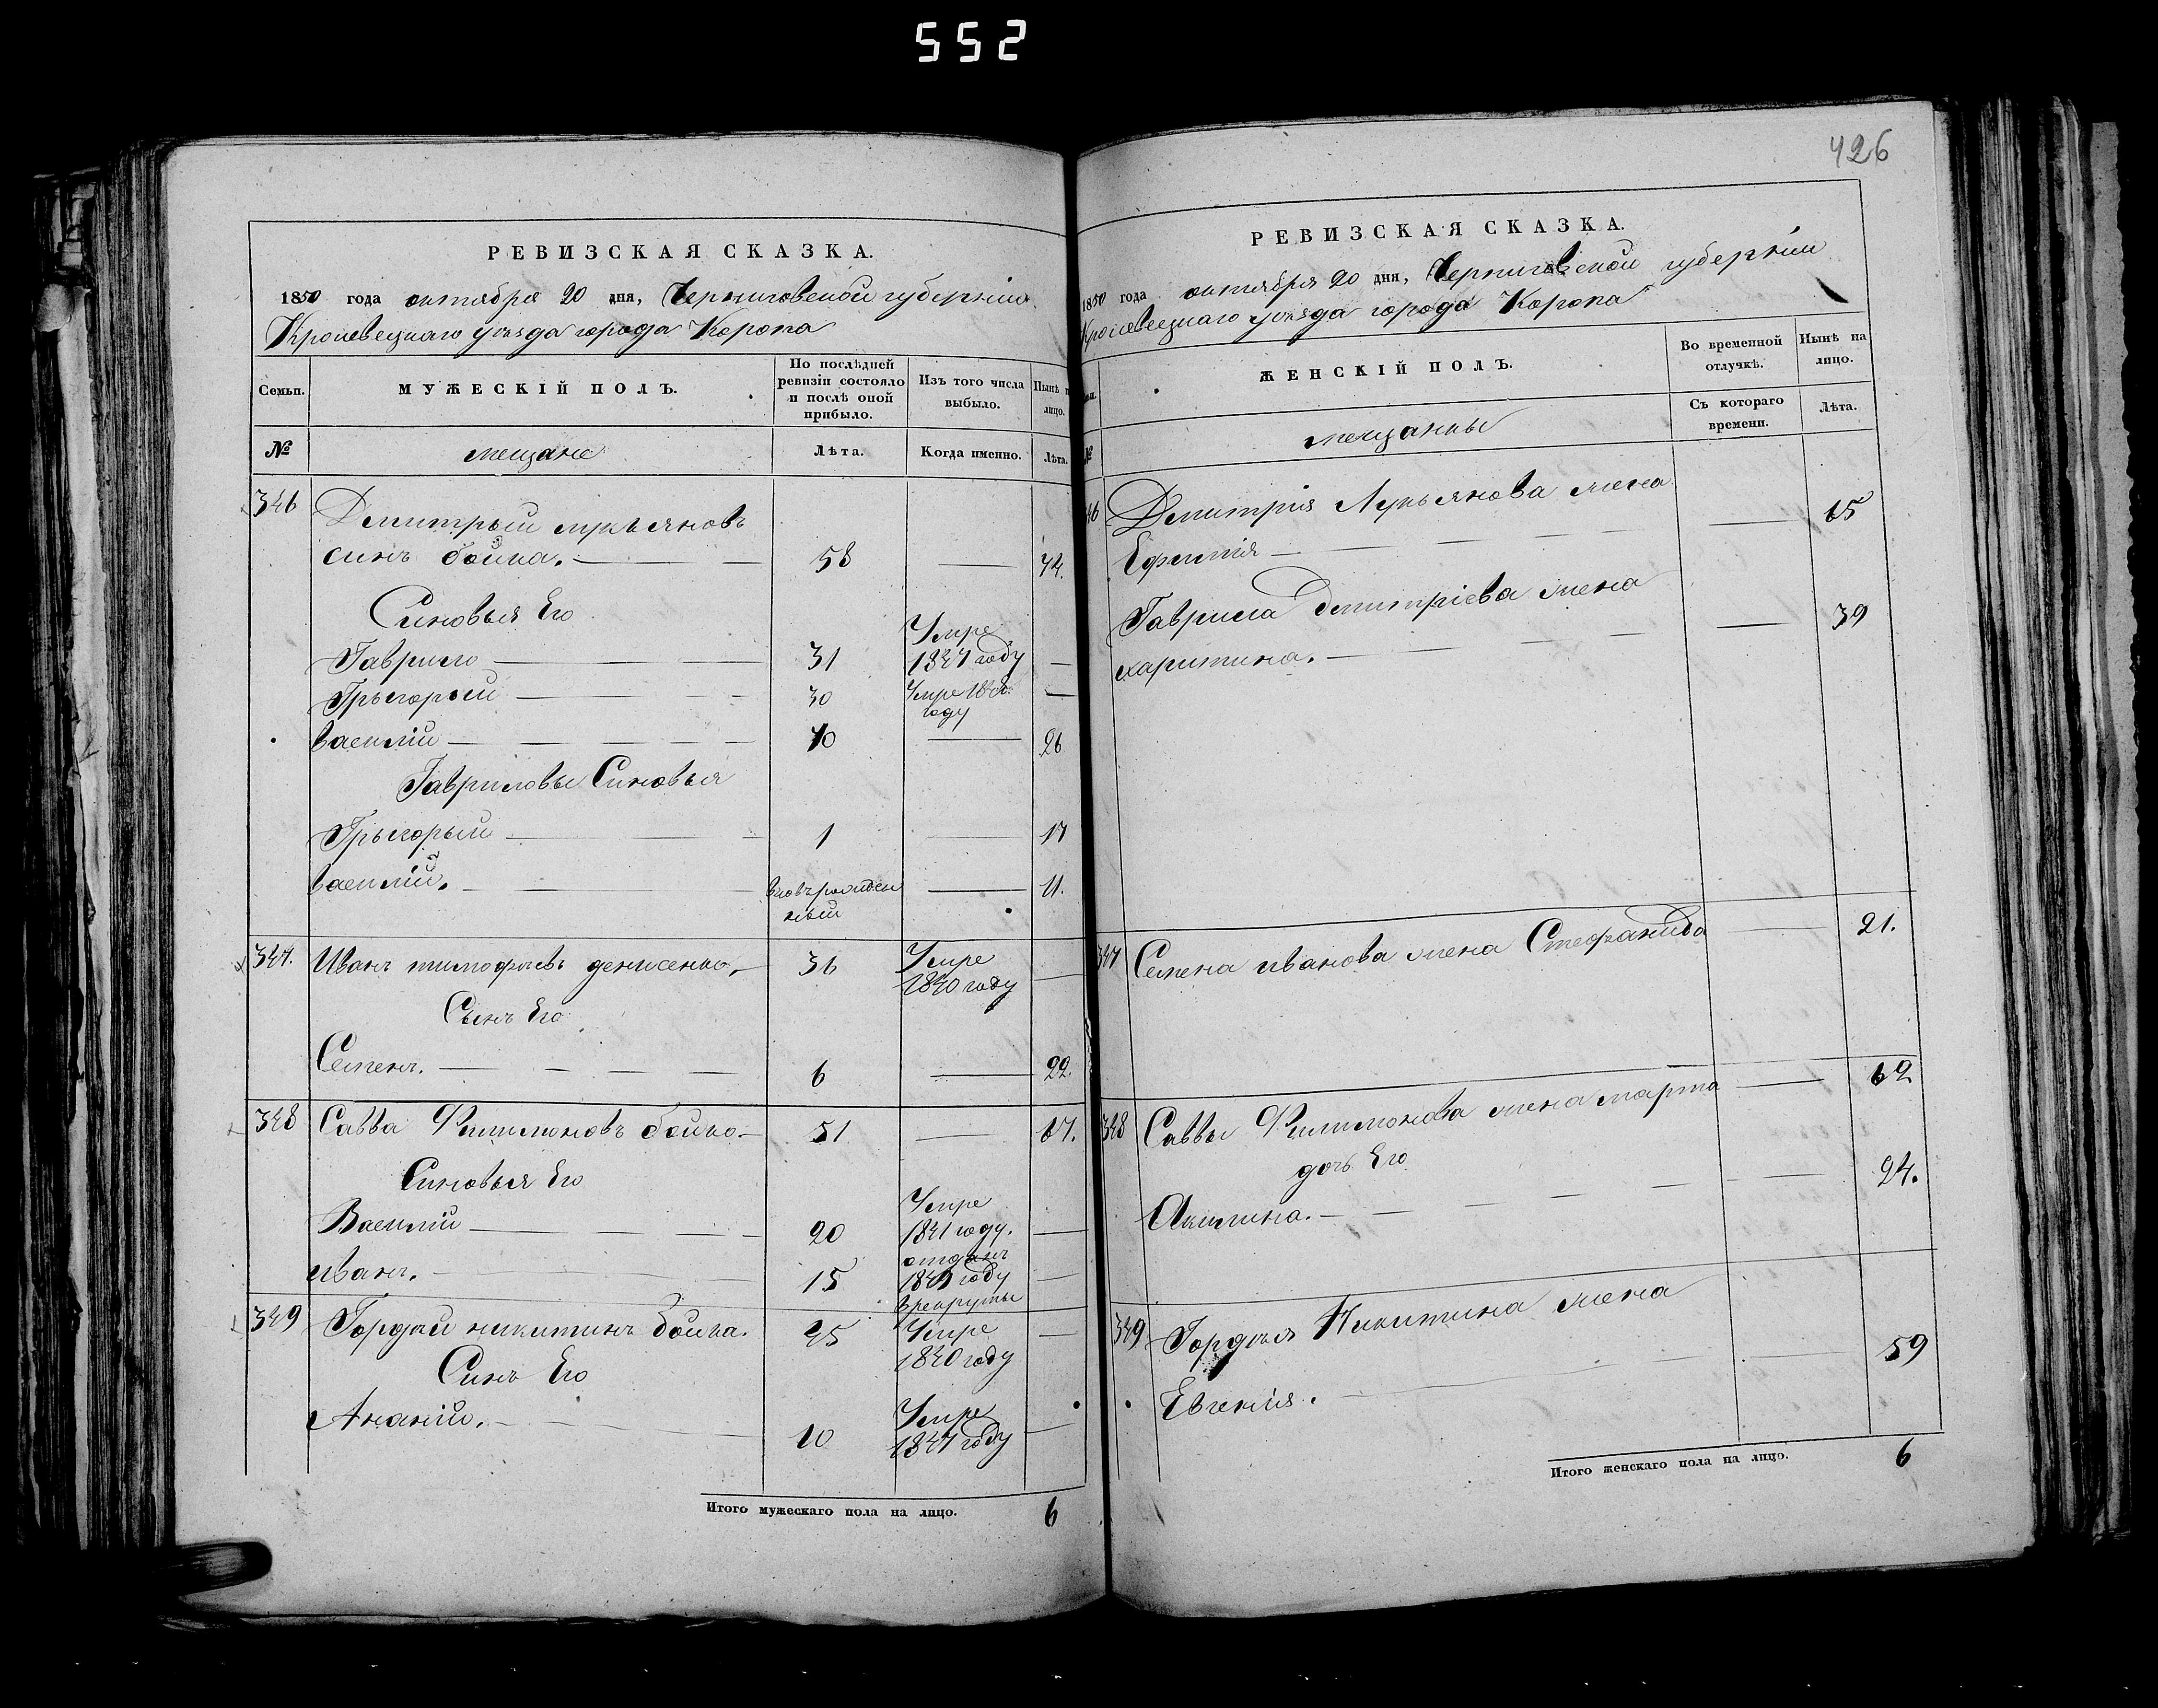 552
426
РЕВИЗСКАЯ СКАЗКА.
1850 года октября 20 дня, Черниговской губерніи
Кролевецкаго уѣзда города Коропа
Семьи.
МУЖЕСКІЙ ПОЛЪ.
По послѣдней ревизіи состояло и послѣ оной прибыло.
Изъ того числа выбыло.
Нынѣ лицо.
№
мещане
Лѣта.
Когда именно.
Лѣта.
346 Дмитрый лукъяновъ
синъ бойка. 58 — 74.
Синовья Его
Гаврило 31 Умре 1847 году —
Грыгорый 30 Умре году —
василій 10 — 26
Гавриловы Синовья
Грыгорый 1 — 17
василій. 2 вновьрожден
ный — 11.
347. Иванъ тимофѣевъ денисенко. 36 Умре 1840 году —
Сынъ Его
Семенъ. 6 — 22.
348 Савва Филимоновъ бойко. 51 — 67.
Синовья Его
Василій 20 Умре 1841 году. —
иванъ. 15 отданъ году в рекруты —
349 Гордѣй никитинъ бойка. 45 Умре 1840 году —
Синъ Его
Ананій. 10 Умре 1847 году —
Итого мужескаго пола на лицо. 6
РЕВИЗСКАЯ СКАЗКА.
1850 года октября 20 дня, Черниговской губерніи
Кролевецкаго уѣзда города Коропа
ЖЕНСКІЙ ПОЛЪ.
Во временной отлучкѣ.
Нынѣ на лицо.
№
мещанки
Съ котораго времени.
Лѣта.
46 Дмитрия Лукьянова жена
Ефимія — 65
Гаврила дмитріева жена
харитина. — 39
347 Семена иванова жена Стефанида — 21.
348 Саввы Филимонова жена марта — 62
дочь Его
Акилина. — 24.
349 Гордѣя Никитина жена
Евгенія. — 59
Итого женскаго пола на лицо. 6